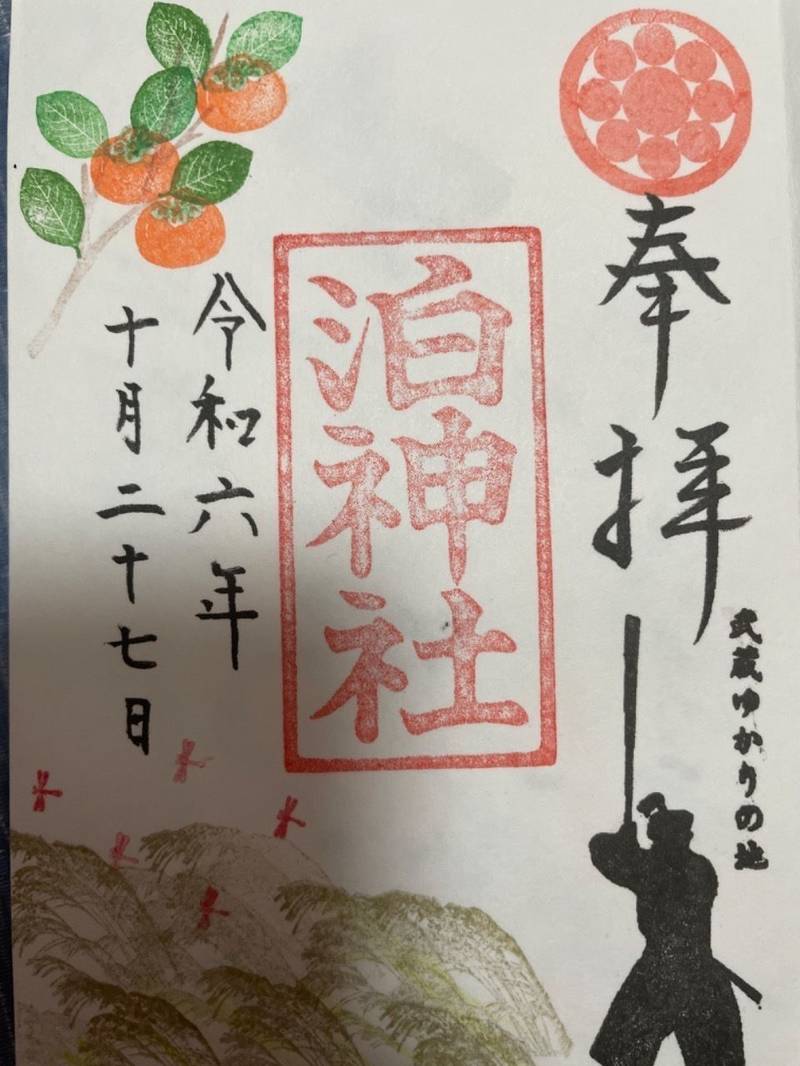 奉拝
武蔵ゆかりの地
泊神社
令和六年
十月二十七日